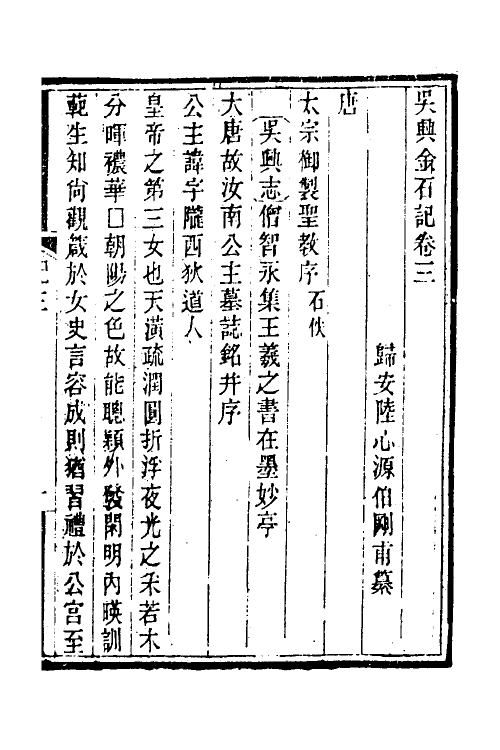 吳興金石記卷三
歸安陸心源伯剛甫纂
唐
太宗御製聖教序 石佚
吳興志僧智永集王羲之書在墨妙亭
大唐故汝南公主墓誌銘并序
公主諱字隴西狄道人
皇帝之第三女也天潢疏潤圓折浮夜光之采若木
分暉禯華囗朝陽之色故能聰穎外發閑明內暎訓
範生知尚觀箴於女史言容成則猶習禮於公宫至
記三